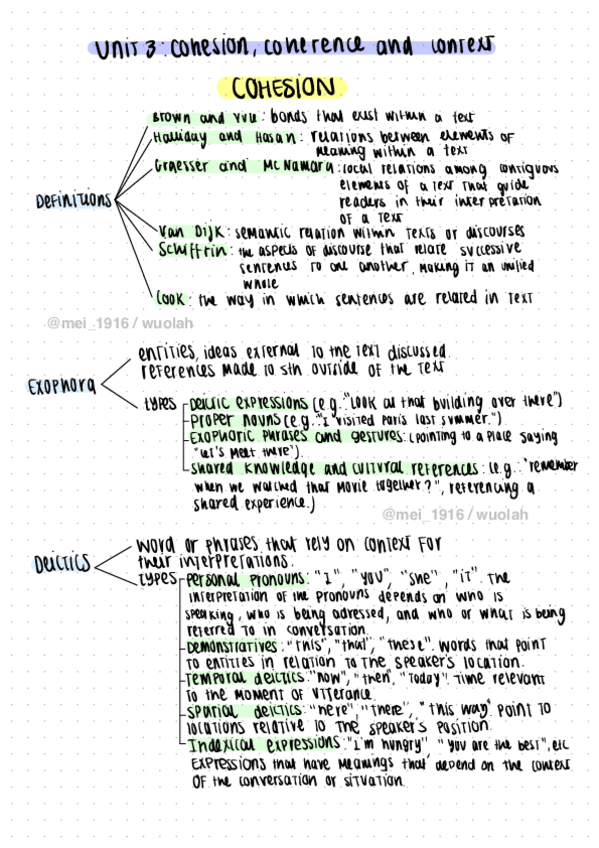 Unit 3: Cohesion, coherence and context
COHESION
Brown and Yule: bonds that exist within a text
Halliday and Hasan: relations between elements of
meaning within a text
Graesser and McNamara: local relations among contiguous
elements of a text that guide
readers in their interpretation
of a text
Definitions
Van Dijk: semantic relation within texts or discourses
Schiffrin: the aspects of discourse that relate successive
sentences to one another, making it an unified
whole
Cook: the way in which sentences are related in text
@mei_1916 / wuolah
Exophora
entities, ideas external to the text discussed.
references made to sth outside of the text
types
Deictic expressions (e.g.:"Look at that building over there")
Proper nouns (e.g.:"I visited Paris last summer.")
Exophoric phrases and gestures: (pointing to a place saying
"let's meet there").
shared knowledge and cultural references: (e.g.: "remember
when we watched that movie together?", referencing a
shared experience.)
@mei_1916 / wuolah
Deictics
word or phrases that rely on context for
their interpretations.
types
Personal pronouns: "I", "you", "she", "it". The
interpretation of the pronouns depends on who is
speaking, who is being adressed, and who or what is being
referred to in conversation.
Demonstratives: "this", "that", "these". words that point
to entities in relation to the speaker's location.
Temporal deictics: "now", "then", "Today". Time relevant
to the moment of utterance.
Spatial deictics: "here", "there", "this way" point to
locations relative to the speaker's position.
Indexical expressions: "I'm hungry", "you are the best", etc
Expressions that have meanings that depend on the context
of the conversation or situation.